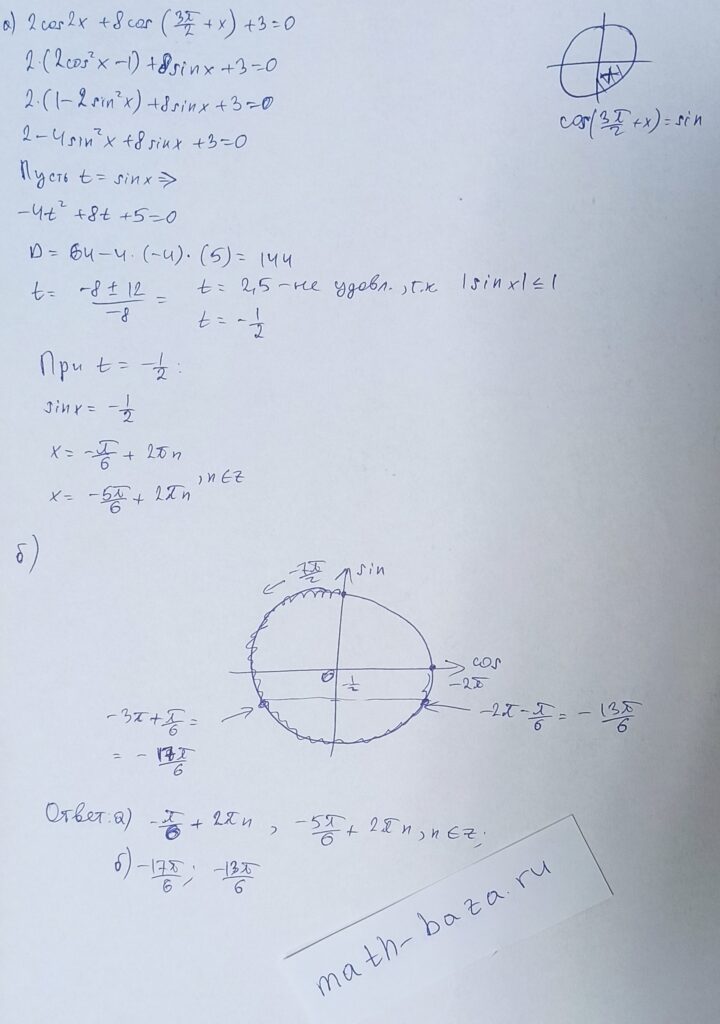 а) 2cos2x + 8cos(3π/2 + x) + 3 = 0
2·(2cos²x − 1) + 8sinx + 3 = 0
2·(1 − 2sin²x) + 8sinx + 3 = 0
2 − 4sin²x + 8sinx + 3 = 0
cos(3π/2 + x) = sin
Пусть t = sinx ⇒
−4t² + 8t + 5 = 0
D = 64 − 4·(−4)·(5) = 144
t = (−8 ± 12)/(−8) = t = 2,5 − не удовл., т.к |sinx| ≤ 1
t = −1/2
При t = −1/2:
sinx = −1/2
x = −π/6 + 2πn
x = −5π/6 + 2πn , n∈Z
б)
−7π/2 sin
cos
0 −1/2 −2π
−3π + π/6 =
= −17π/6
−2π − π/6 = −13π/6
Ответ: а) −π/6 + 2πn, −5π/6 + 2πn, n∈Z;
б) −17π/6; −13π/6
math-baza.ru